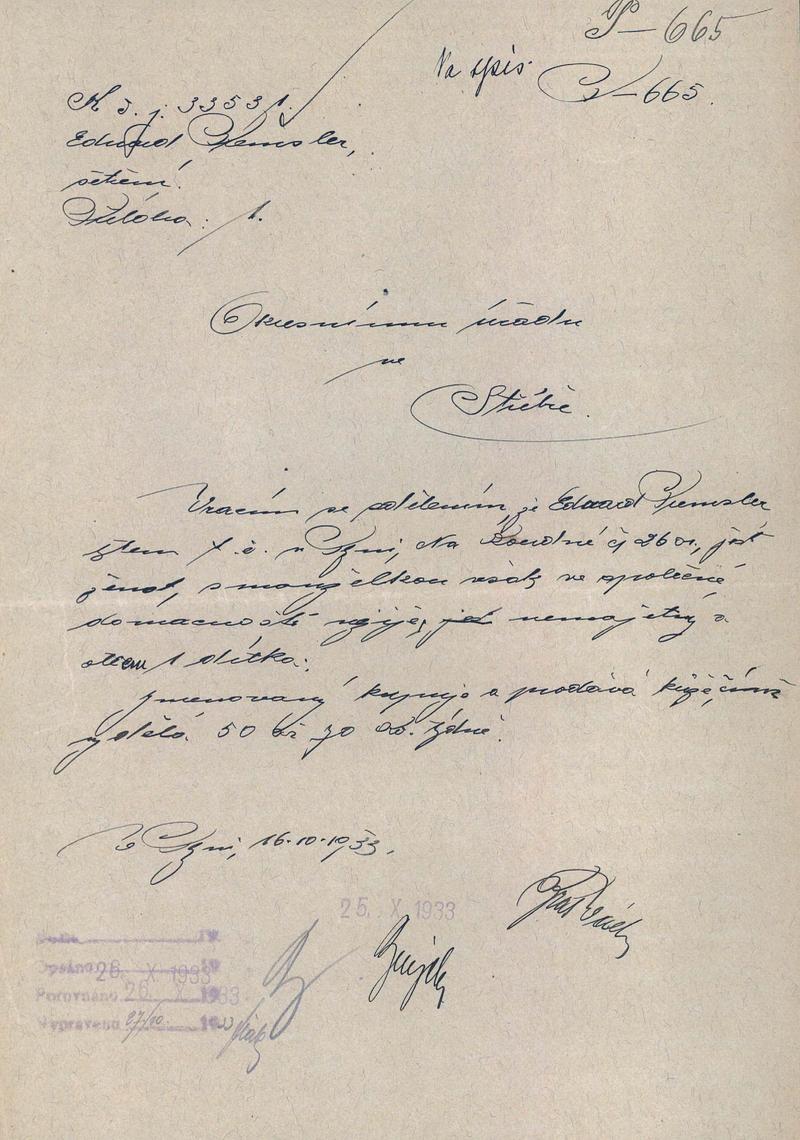 P-665
Na spis.
P-665.
K č. j. 3353/1.
Eduard
šetření.
Příloha: 1.
Okresnímu úřadu
ve
Stříbře.
Vracím se sdělením, že Eduard
jest
ženat, s manželkou však ve společné
domácnosti nežije, nemajetný a
otcem 1 dítka.
Jmenovaný kupuje a prodává kůže, čímž
vydělá 50 až 70 Kč. týdně.
V Plzni, 16.10.1933.
25. X. 1933
Došlo 19
Opsáno 26. X 1933
Porovnáno 26. X 1933
Vypraveno 27/10. 1933